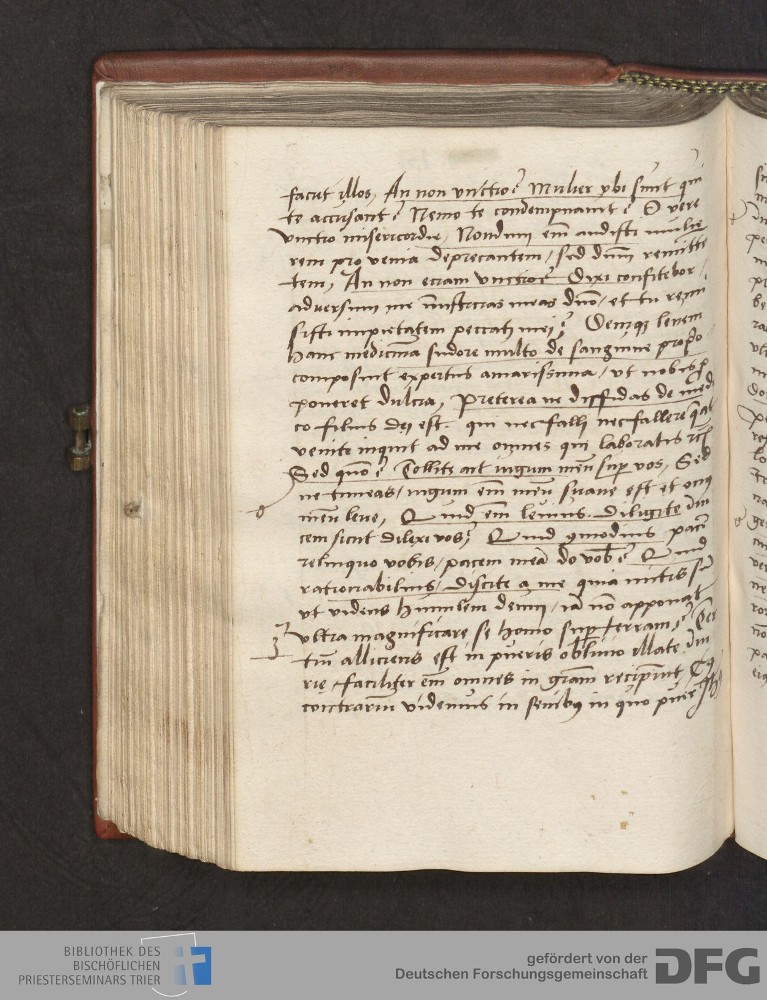 facit illos, An non vnctio? Mulier vbi sunt qui
te accusant? Nemo te condempnauit? O vere
vnctio misericordie, Nondum em̃ audisti mulie
rem pro venia deprecantem / sed dum̃ remitte
tem, An non etiam vnctio? Dixi confitebor,
aduersum me iniusticias meas dño, et tu remi
sisti impietatem peccati mei? Deniq; leuem
hanc medicinã sudore multo de sanguine proprio
composuit expertus amarissima / vt nobis p̃
poneret dulcia, Preterea ne diffidas de medi
co filius dei est qui nec falli nec fallere
venite inquit ad me omnes qui laboratis
Sed quõ? Tollite ait iugum meũ sup vos, Sed
ne timeas / iugum em̃ meũ suaue est et onus
meũ leue, Quid em̃ leuius Diligite
cem sicut dilexi vos? Quid
relinquo vobis / pacem meã do vob̃? Quid
rationabilius / discite a me quia mitis sũ
vt videns humilem deum / iã nõ apponat
vltra magnificare se homo sup terram?
tiũ alliciens est in pueris oblatio
rie faciliter em̃ omnes in grãm recipiunt
contrarium videmus in senibus in quo puer Jhs
BIBLIOTHEK DES
BISCHÖFLICHEN
PRIESTERSEMINARS TRIER
gefördert von der
Deutschen Forschungsgemeinschaft
DFG